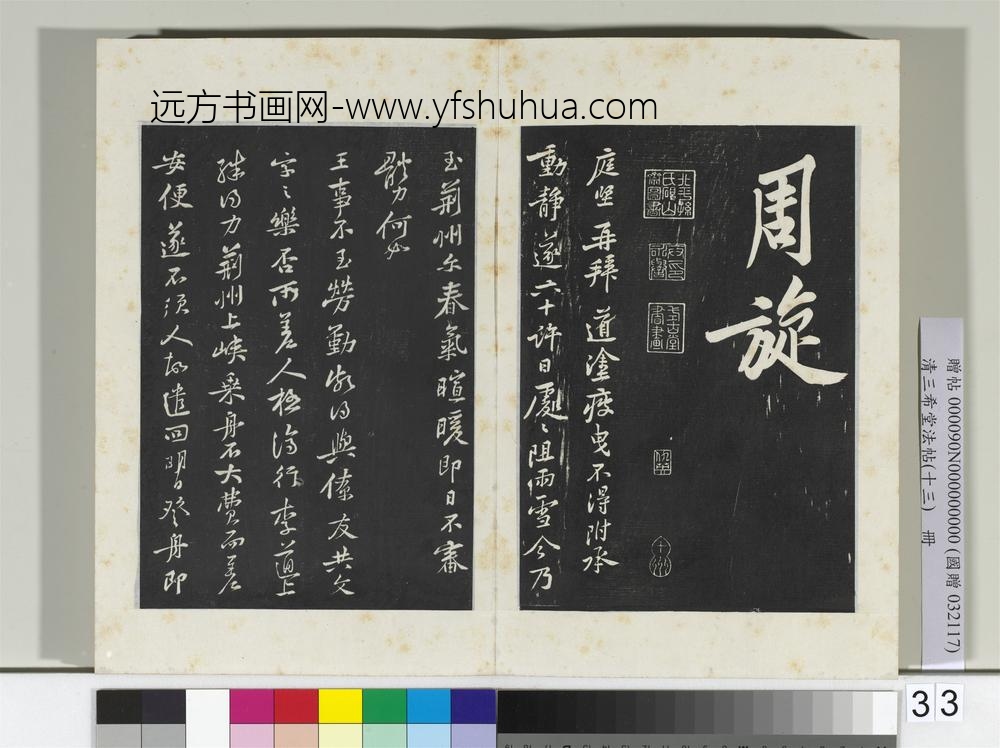 远方书画网-www.yfshuhua.com
周旋
北平孫氏硯山齋圖書
庭堅再拜道塗疲曳不得附承
動靜遂六十許日處〻阻雨雪今乃
至荊州尔春氣暄暖即日不審
體力何如
王事不至勞勤頗得與僚友共文
字之樂否所差人極濟行李道上
殊得力荊州上峽乘舟不大費而差
安便遂不須人故遣回明日登舟即
贈帖 000090N000000000 (國贈 032117)
清三希堂法帖(十三) 冊
33